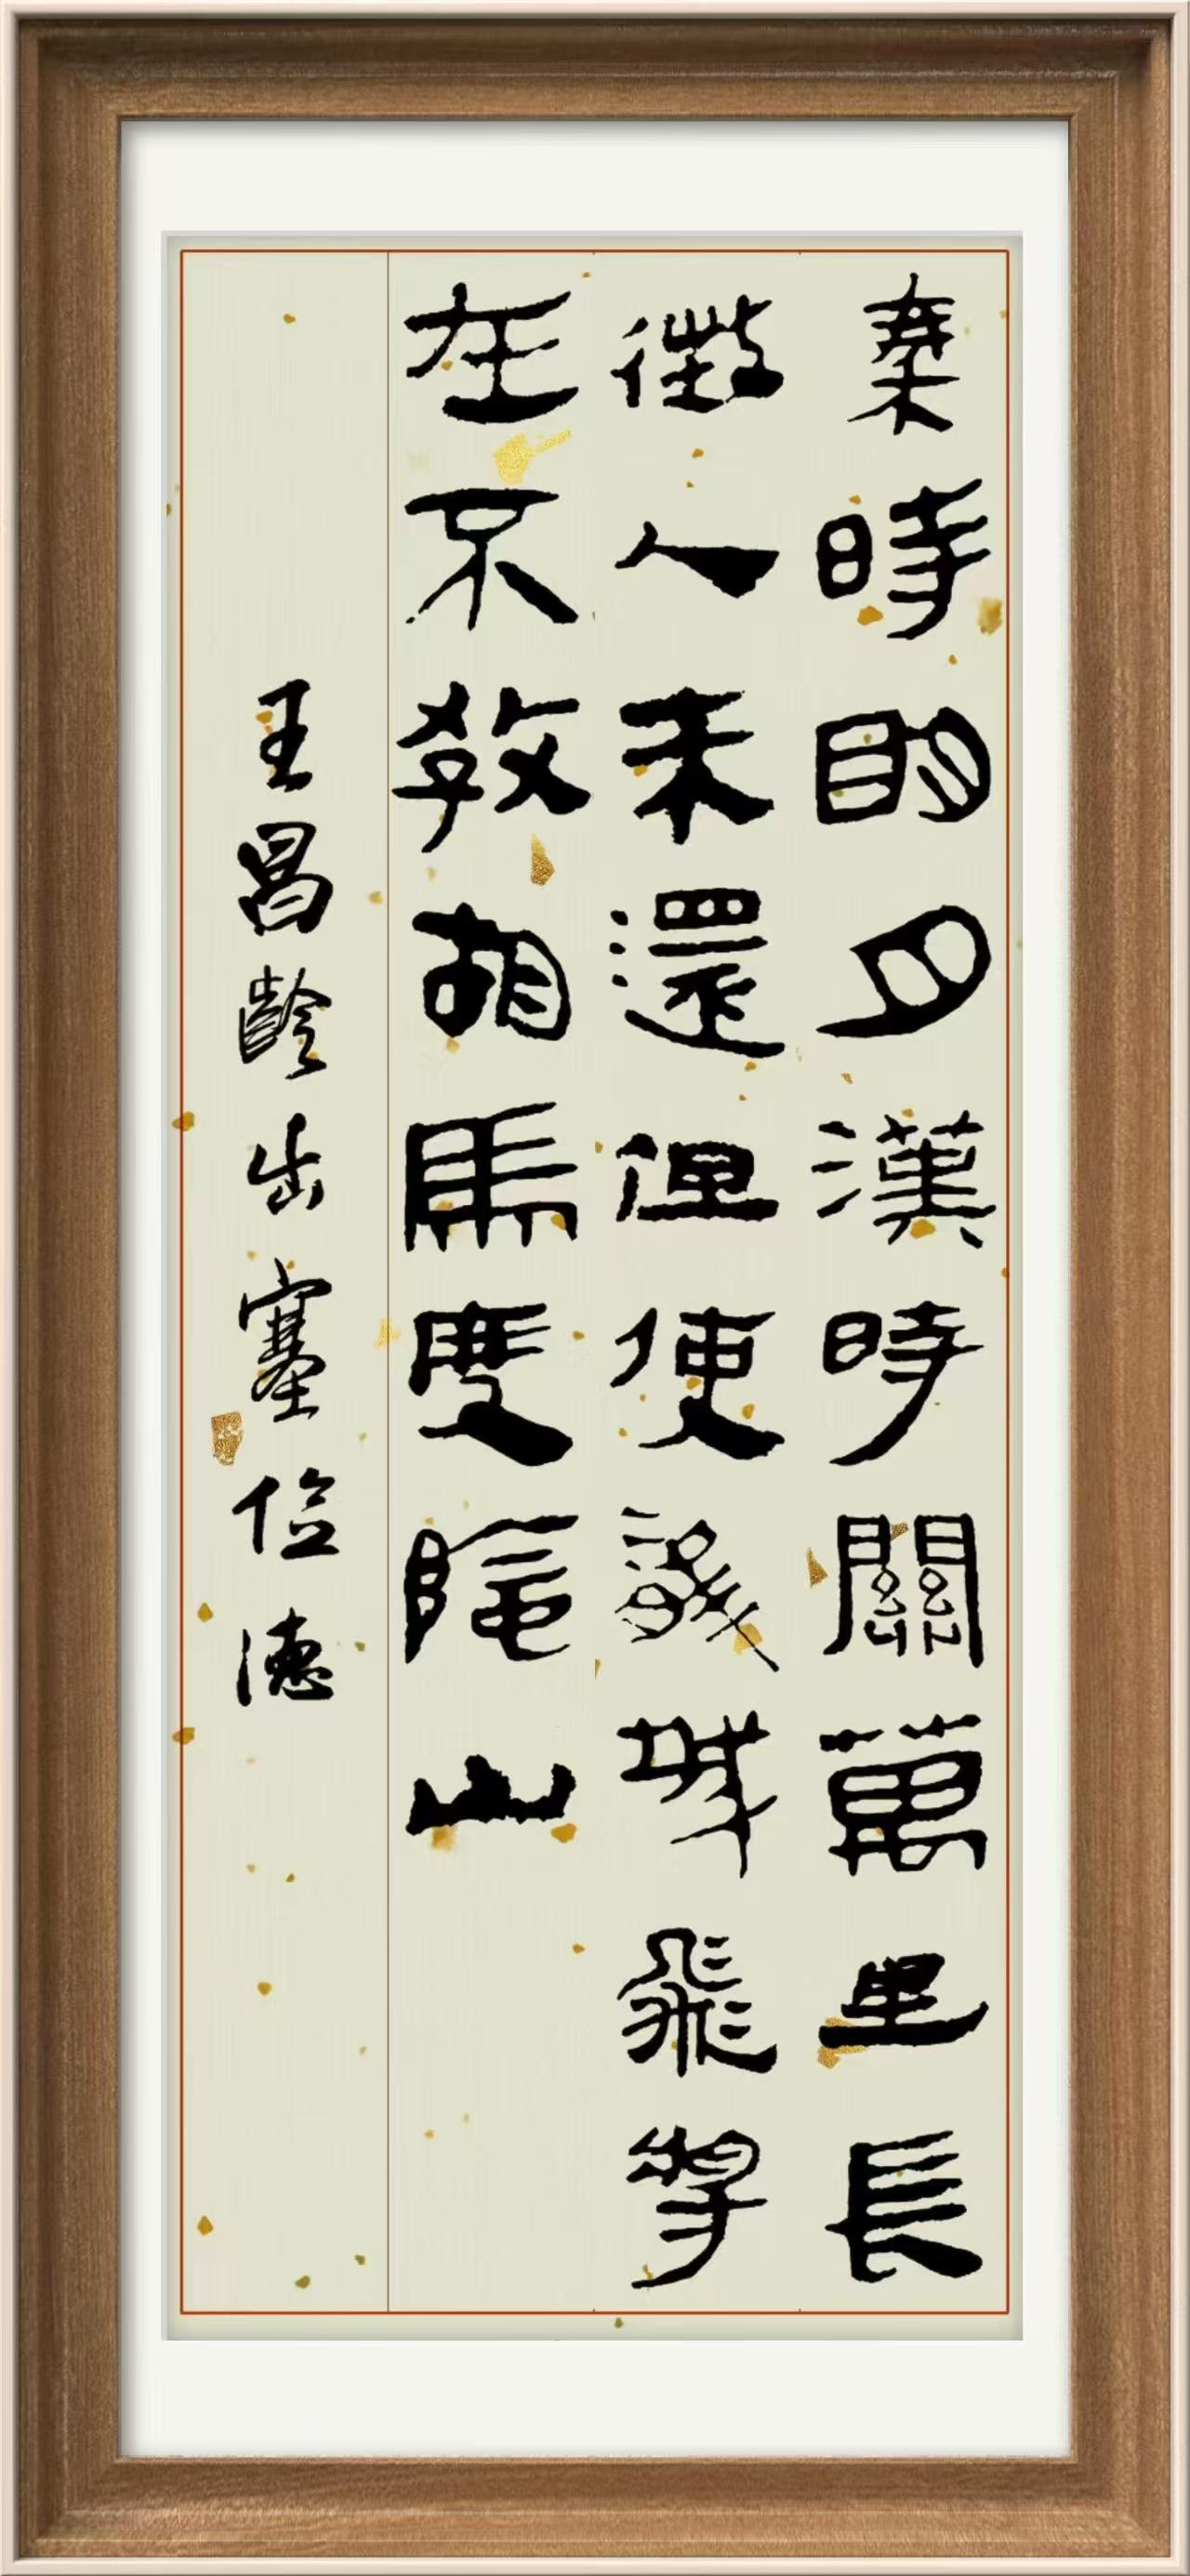 秦時眀月漢時關萬里長
徵人未還但使龍城飛將
在不教胡馬度陰山
王昌齡出塞 俭德